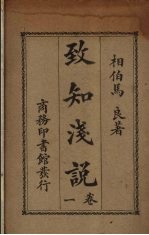 相伯馬 良著
致知淺説
卷一
商務印書館發行